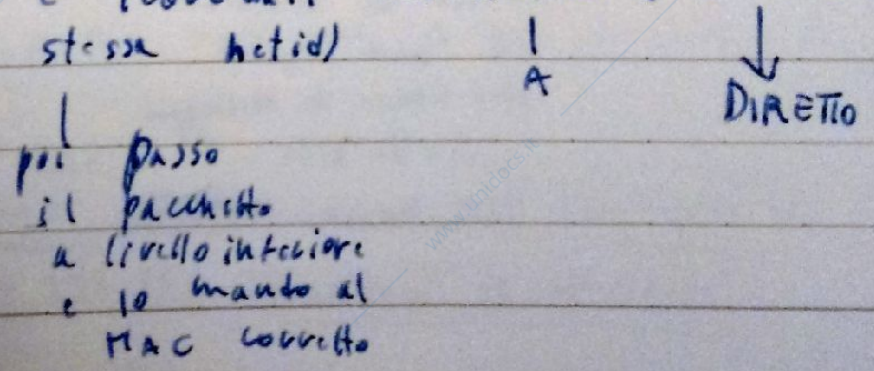 stessa netid)
A
DIRETTO
poi passo
il pacchetto
a livello inferiore
e lo mando al
MAC corretto
www.unidocs.it